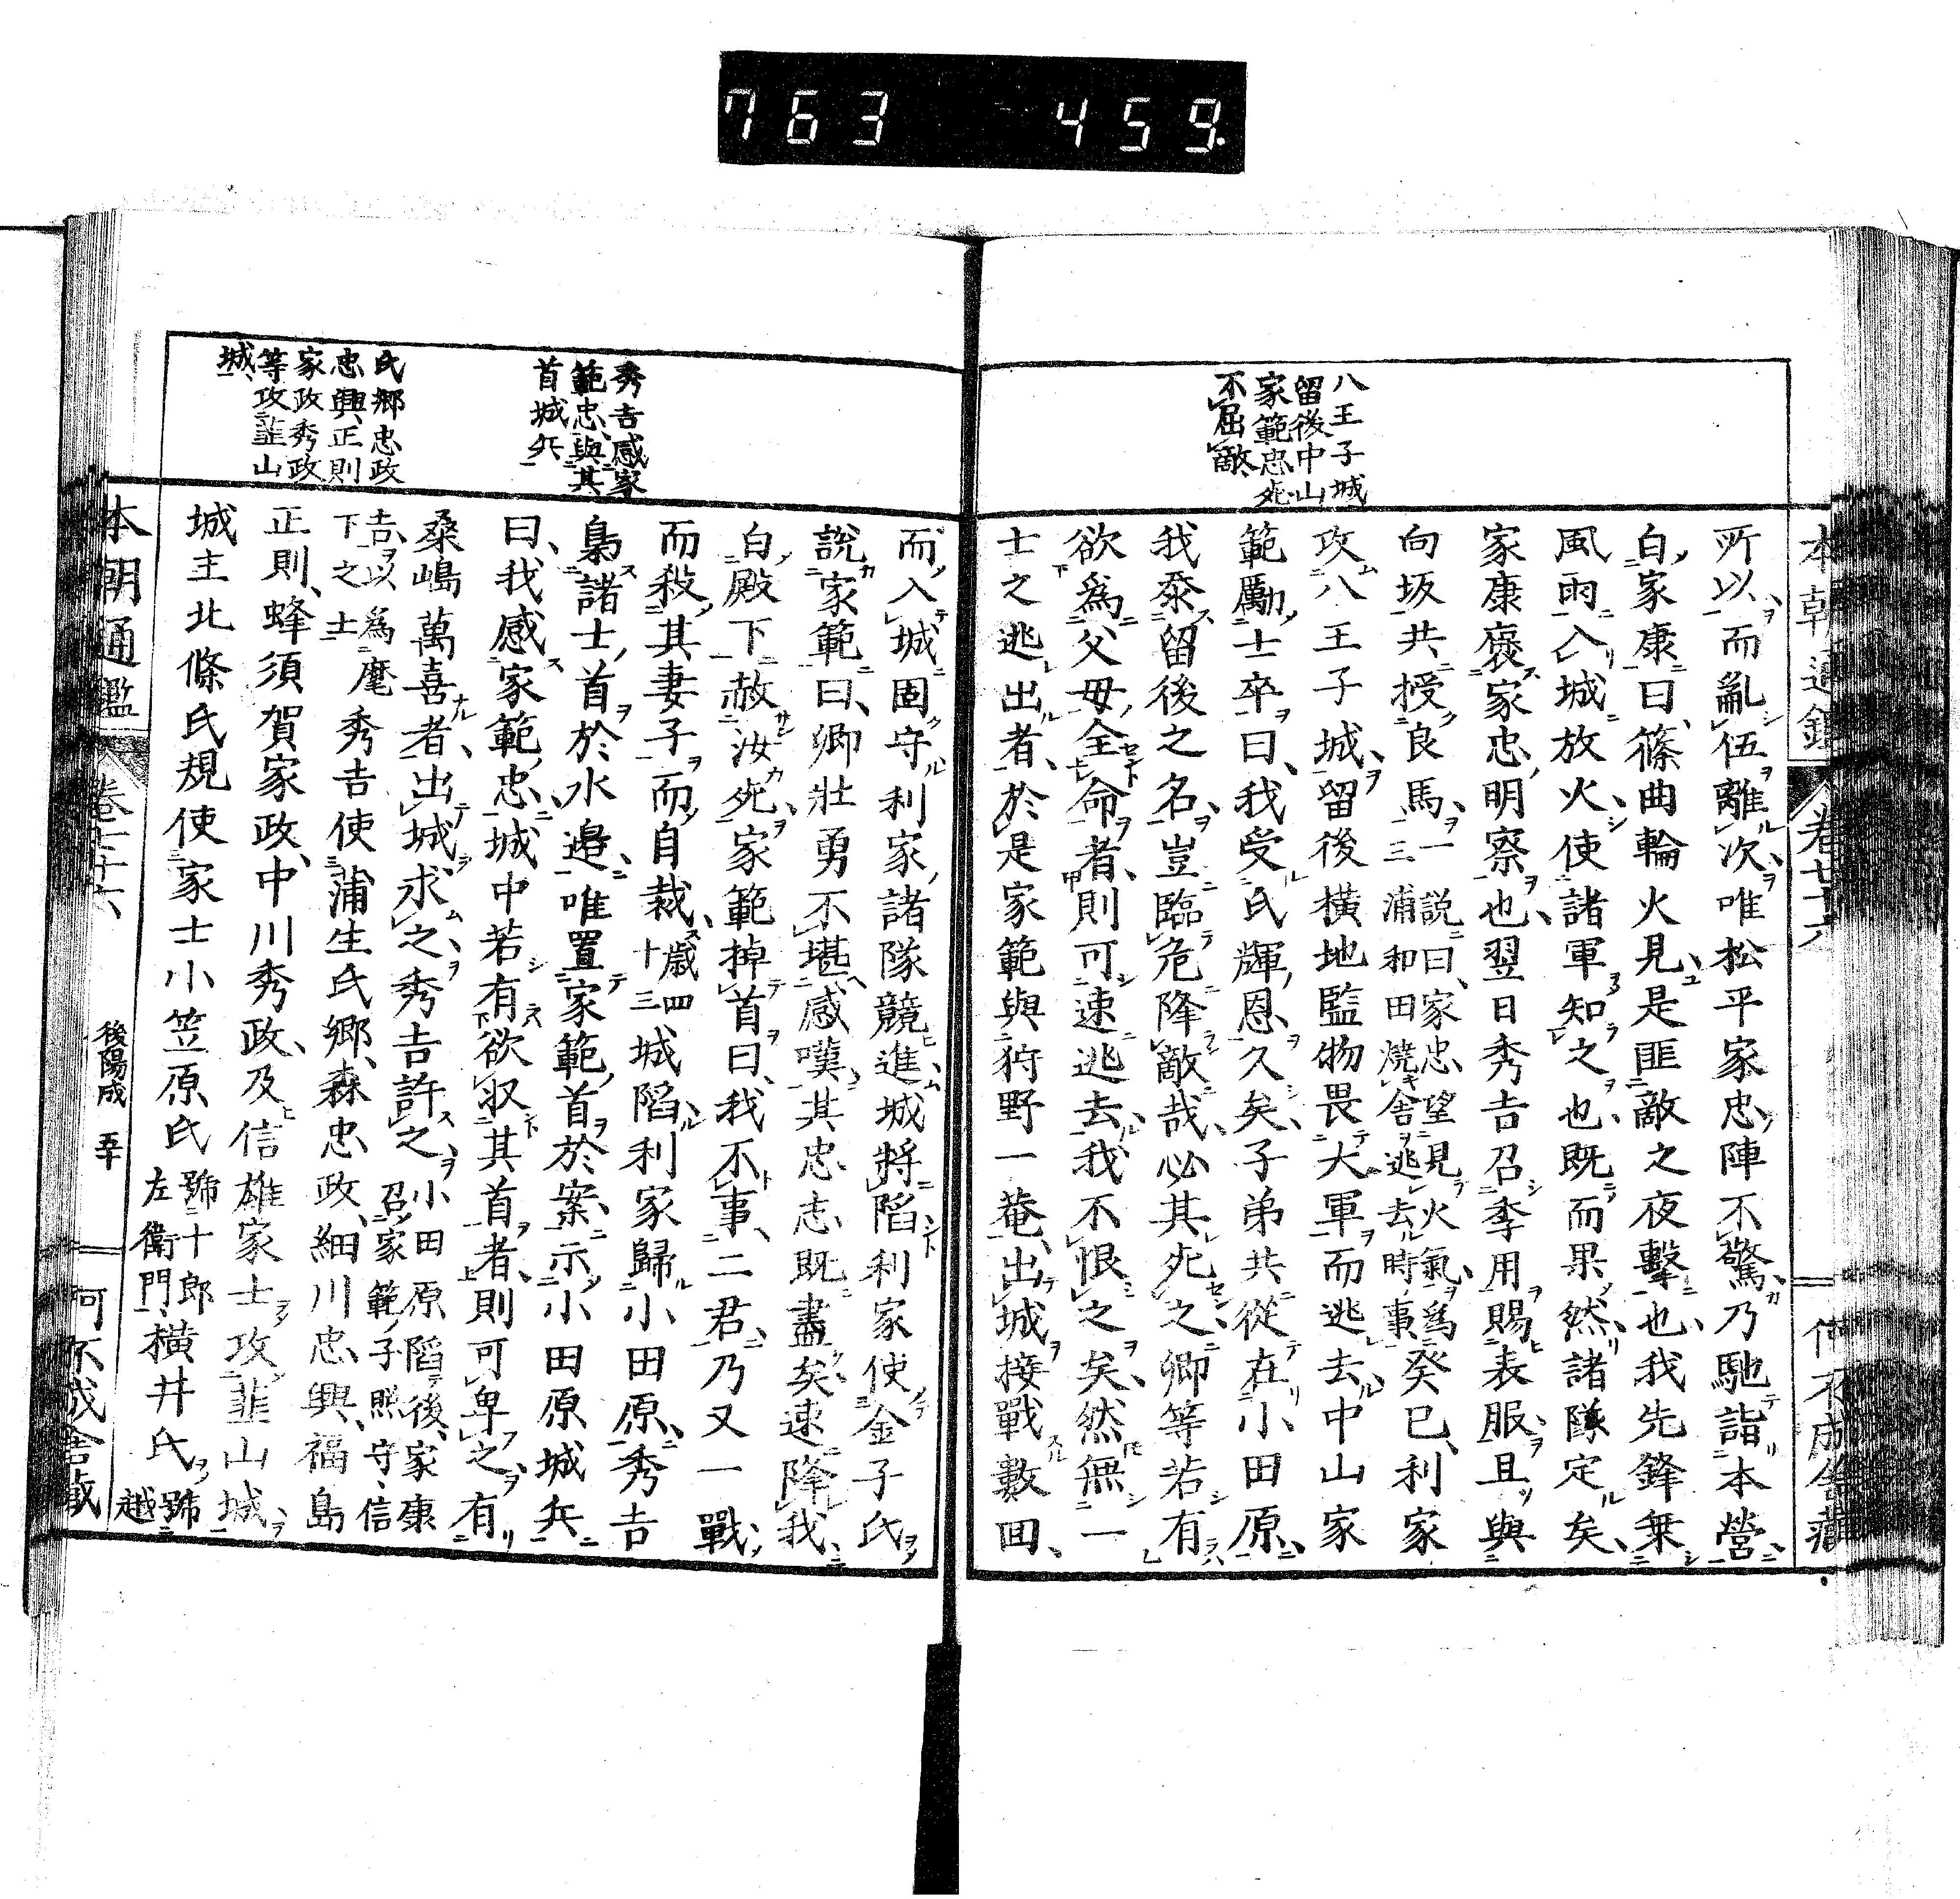 763 459.
本朝通鑑 卷七十六
八王子城
留後中山
家範忠死
不屈敵
所以而亂伍離次唯松平家忠陣不驚乃馳詣本營
白家康曰篠曲輪火見是匪敵之夜擊也我先鋒乗
風雨入城放火使諸軍知之也既而果然諸隊定矣
家康褒家忠明察也翌日秀吉召李用賜表服且與
向坂共授良馬一說曰家忠望見火氣爲三浦和田燒舍逃去時事癸巳利家
攻八王子城留後橫地監物畏大軍而逃去中山家
範勵士卒曰我受氏輝恩久矣子弟共從在小田原
我忝留後之名豈臨危降敵哉必其死之卿等若有
欲爲父母全命者則可速逃去我不恨之矣然無一
士之逃出者於是家範與狩野一菴出城接戰數回
秀吉感家
範忠與其
首城兵
氏鄉忠政
忠興正則
家政秀政
等攻韮山
城
而入城固守利家諸隊競進城將陷利家使金子氏
說家範曰卿壯勇不堪感嘆其忠志既盡矣速降我
白殿下赦汝死家範掉首曰我不事二君乃又一戰
而殺其妻子而自裁歲四十三城陷利家歸小田原秀吉
梟諸士首於水邉唯置家範首於案示小田原城兵
曰我感家範忠城中若有欲収其首者則可卑之有
桑嶋萬喜者出城求之秀吉許之小田原陷後家康召家範子照守信
吉以爲麾下之士秀吉使蒲生氏鄉森忠政細川忠興福島
正則蜂須賀家政中川秀政及信雄家士攻韮山城
城主北條氏規使家士小笠原氏號十郎左衞門橫井氏號越
本朝通鑑 卷七十六 後陽成 五十